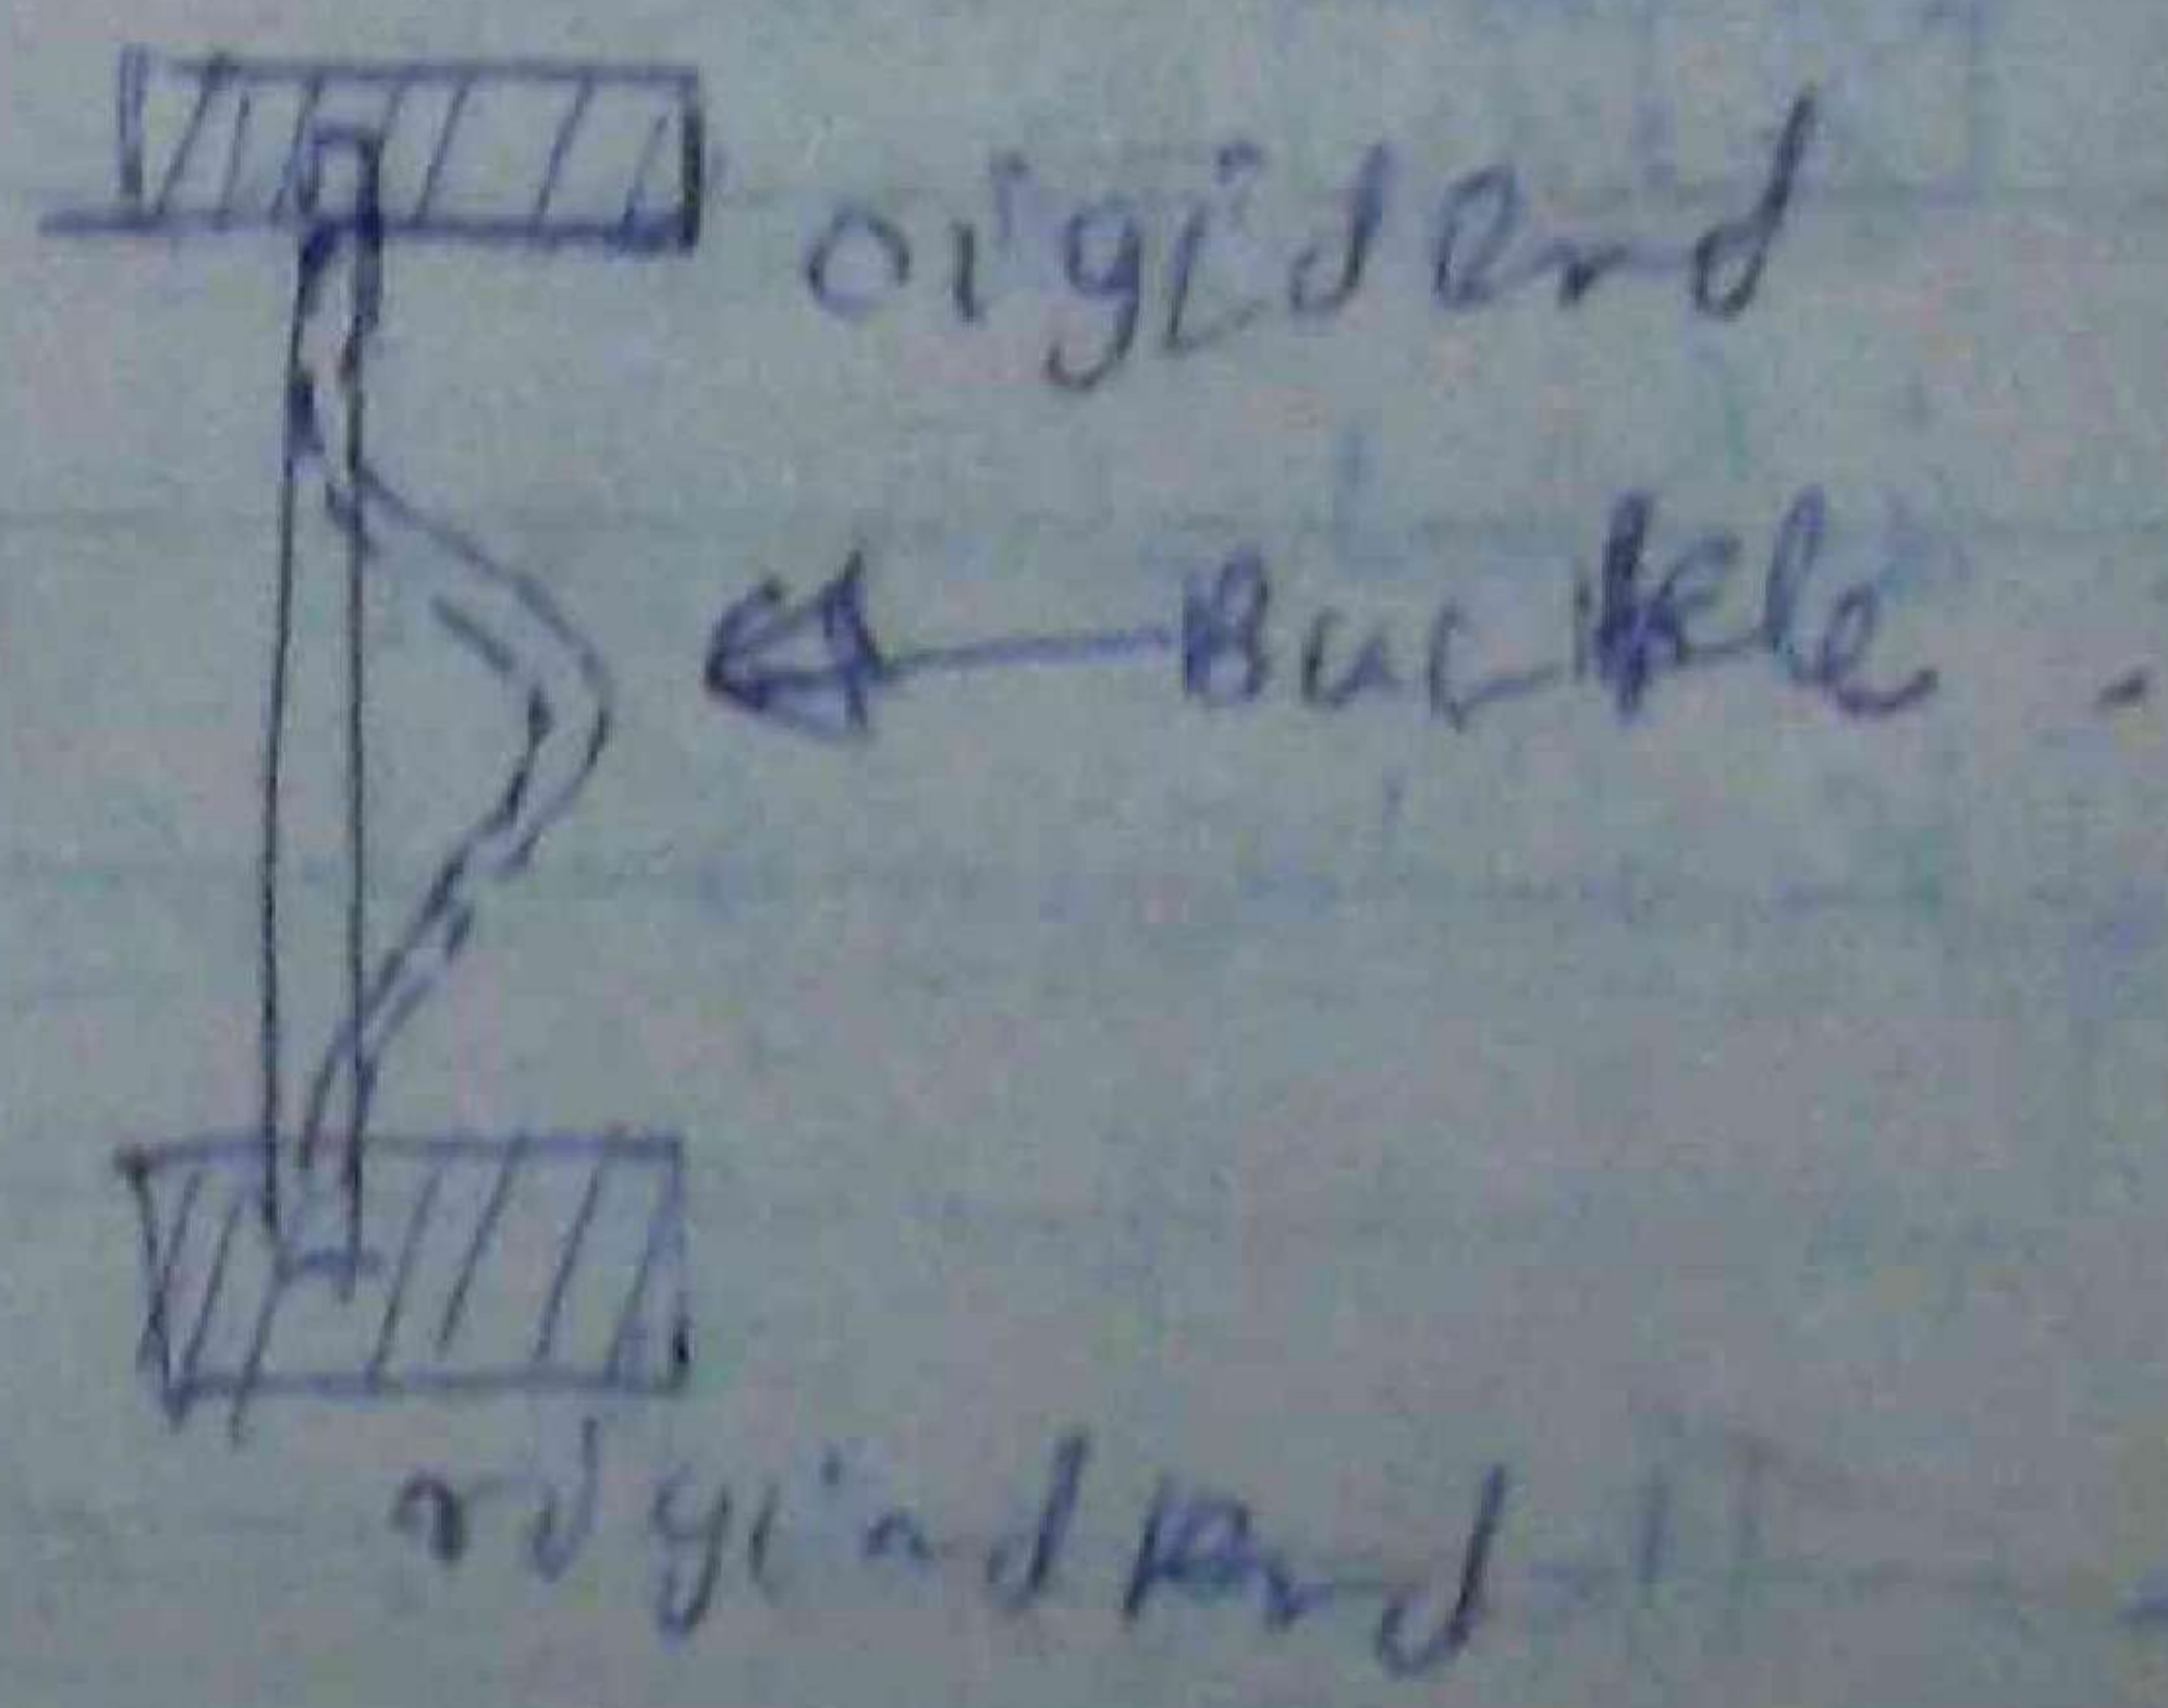 oigid end
Buckle.
rdgind end